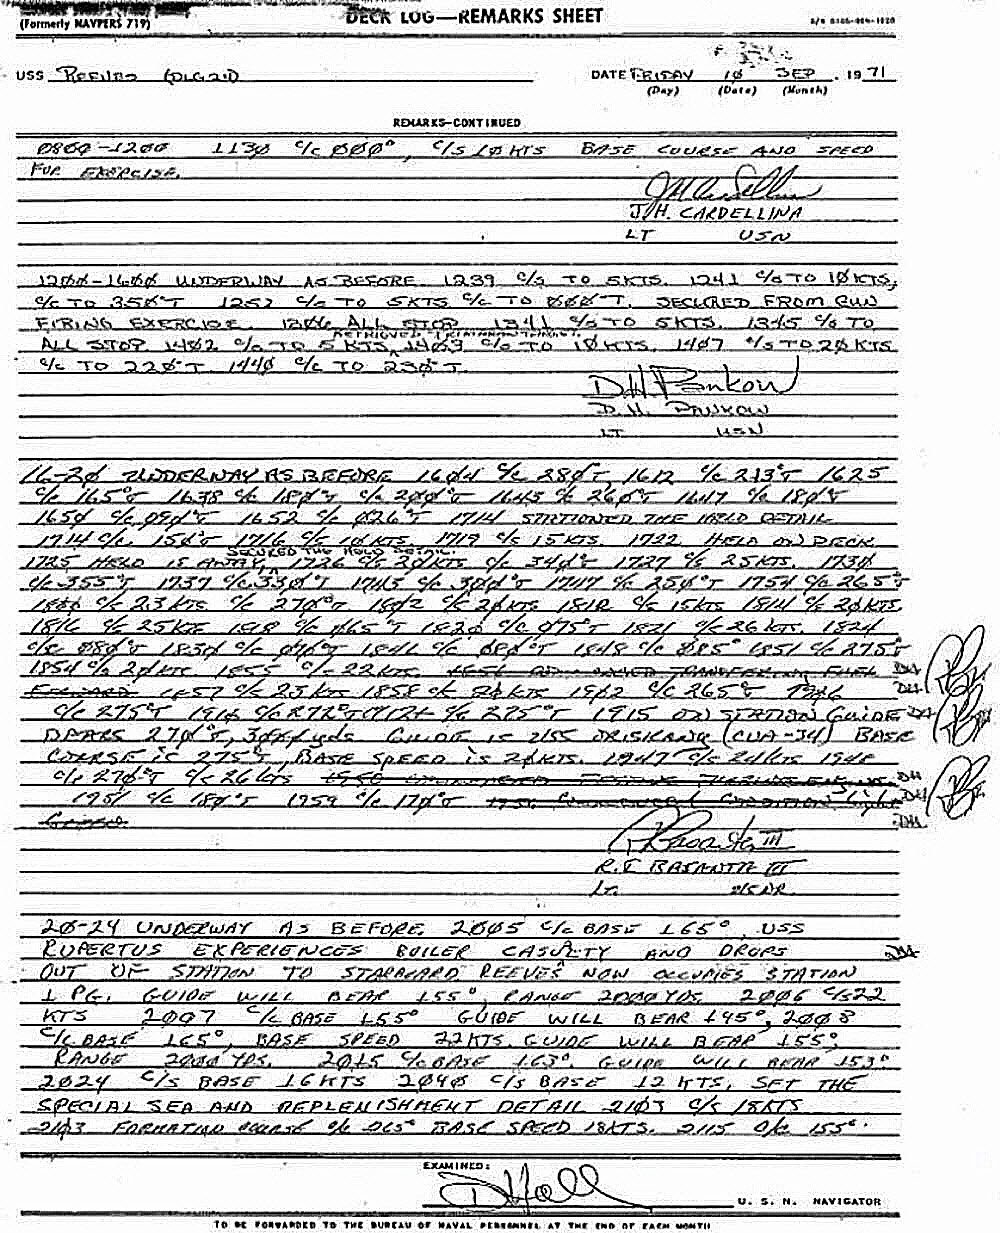 DECK LOG—REMARKS SHEET
(Formerly NAVPERS 719)
USS REEVES (DLG 24) DATE FRIDAY 10 SEP , 19 71
(Day) (Date) (Month)
REMARKS—CONTINUED
0800-1200 1130 C/C 000°, C/S 10 KTS BASE COURSE AND SPEED
FOR EXERCISE.
J.H. CARDELLINA
LT USN
1200-1600 UNDERWAY AS BEFORE 1239 C/S TO 5KTS. 1241 C/S TO 10KTS,
C/C TO 350°T 1252 C/S TO 5KTS C/C TO 000°T. SECURED FROM GUN
FIRING EXERCISE. 1306 ALL STOP 1341 C/S TO 5KTS. 1345 C/S TO
RETRIEVED
ALL STOP 1402 C/S TO 5 KTS, 1403 C/S TO 10KTS, 1407 C/S TO 20KTS
C/C TO 220°T. 1440 C/C TO 230°T.
D.H. Pankow
D. H. PANKOW
LT USN
16-20 UNDERWAY AS BEFORE 1604 C/C 280°T, 1612 C/C 213°T 1625
C/C 165°T 1638 C/C 180°T C/C 200°T 1643 C/C 260°T 1647 C/C 180°T
1650 C/C 090°T 1652 C/C 026°T 1714 STATIONED THE HELO DETAIL
1714 C/C 150°T 1716 C/S 10 KTS 1719 C/S 15KTS. 1722 HELO ON DECK
SECURED THE HELO DETAIL.
1725 HELO IS AWAY, 1726 C/S 20KTS C/C 340°T 1727 C/S 25KTS. 1730
C/C 355°T 1737 C/C 330°T 1743 C/C 300°T 1747 C/C 250°T 1754 C/C 265°T
C/S 23 KTS C/C 270°T. 1802 C/S 20KTS 1812 C/S 15KTS 1814 C/S 20KTS.
1816 C/S 25KTS 1818 C/C 065°T 1820 C/C 075°T 1821 C/S 26KTS. 1824
C/C 080°T 1830 C/C 090°T 1841 C/C 080°T 1848 C/C 085° 1851 C/C 275°T
1854 C/S 20KTS 1855 C/S 22KTS. DH
1857 C/S 23KTS 1858 C/S KTS 1902 C/C 265°T DH
C/C 275°T 1914 C/C 272°T C/C 275°T 1915 ON STATION GUIDE DH
BEARS 270°T, yds GUIDE IS USS ORISKANY (CVA-34) BASE
COURSE IS 275°T, BASE SPEED IS 20KTS. 1947 C/S 24KTS 1948
C/C 270°T C/S 26KTS DH
1951 C/C 180°T 1959 C/C 170°T DH
DH
R.I. BASANTA III
LT. USNR
20-24 UNDERWAY AS BEFORE. 2005 C/C BASE 165°, USS
RUPERTUS EXPERIENCES BOILER CASUALTY AND DROPS DH
OUT OF STATION TO STARBOARD REEVES NOW OCCUPIES STATION
1 PG. GUIDE WILL BEAR 155°, RANGE 2000YDS. 2006 C/S 22
KTS 2007 C/C BASE 155° GUIDE WILL BEAR 145°, 2008
C/C BASE 165°, BASE SPEED 22KTS. GUIDE WILL BEAR 155°,
RANGE 2000 YDS. 2015 C/C BASE 163°. GUIDE WILL BEAR 153°.
2024 C/S BASE 16KTS 2040 C/S BASE 12 KTS, SET THE
SPECIAL SEA AND REPLENISHMENT DETAIL 2103 C/S 18KTS
2103 FORMATION COURSE C/C 265° BASE SPEED 18KTS. 2115 C/C 155°.
EXAMINED:
D Hall
U. S. N. NAVIGATOR
TO BE FORWARDED TO THE BUREAU OF NAVAL PERSONNEL AT THE END OF EACH MONTH